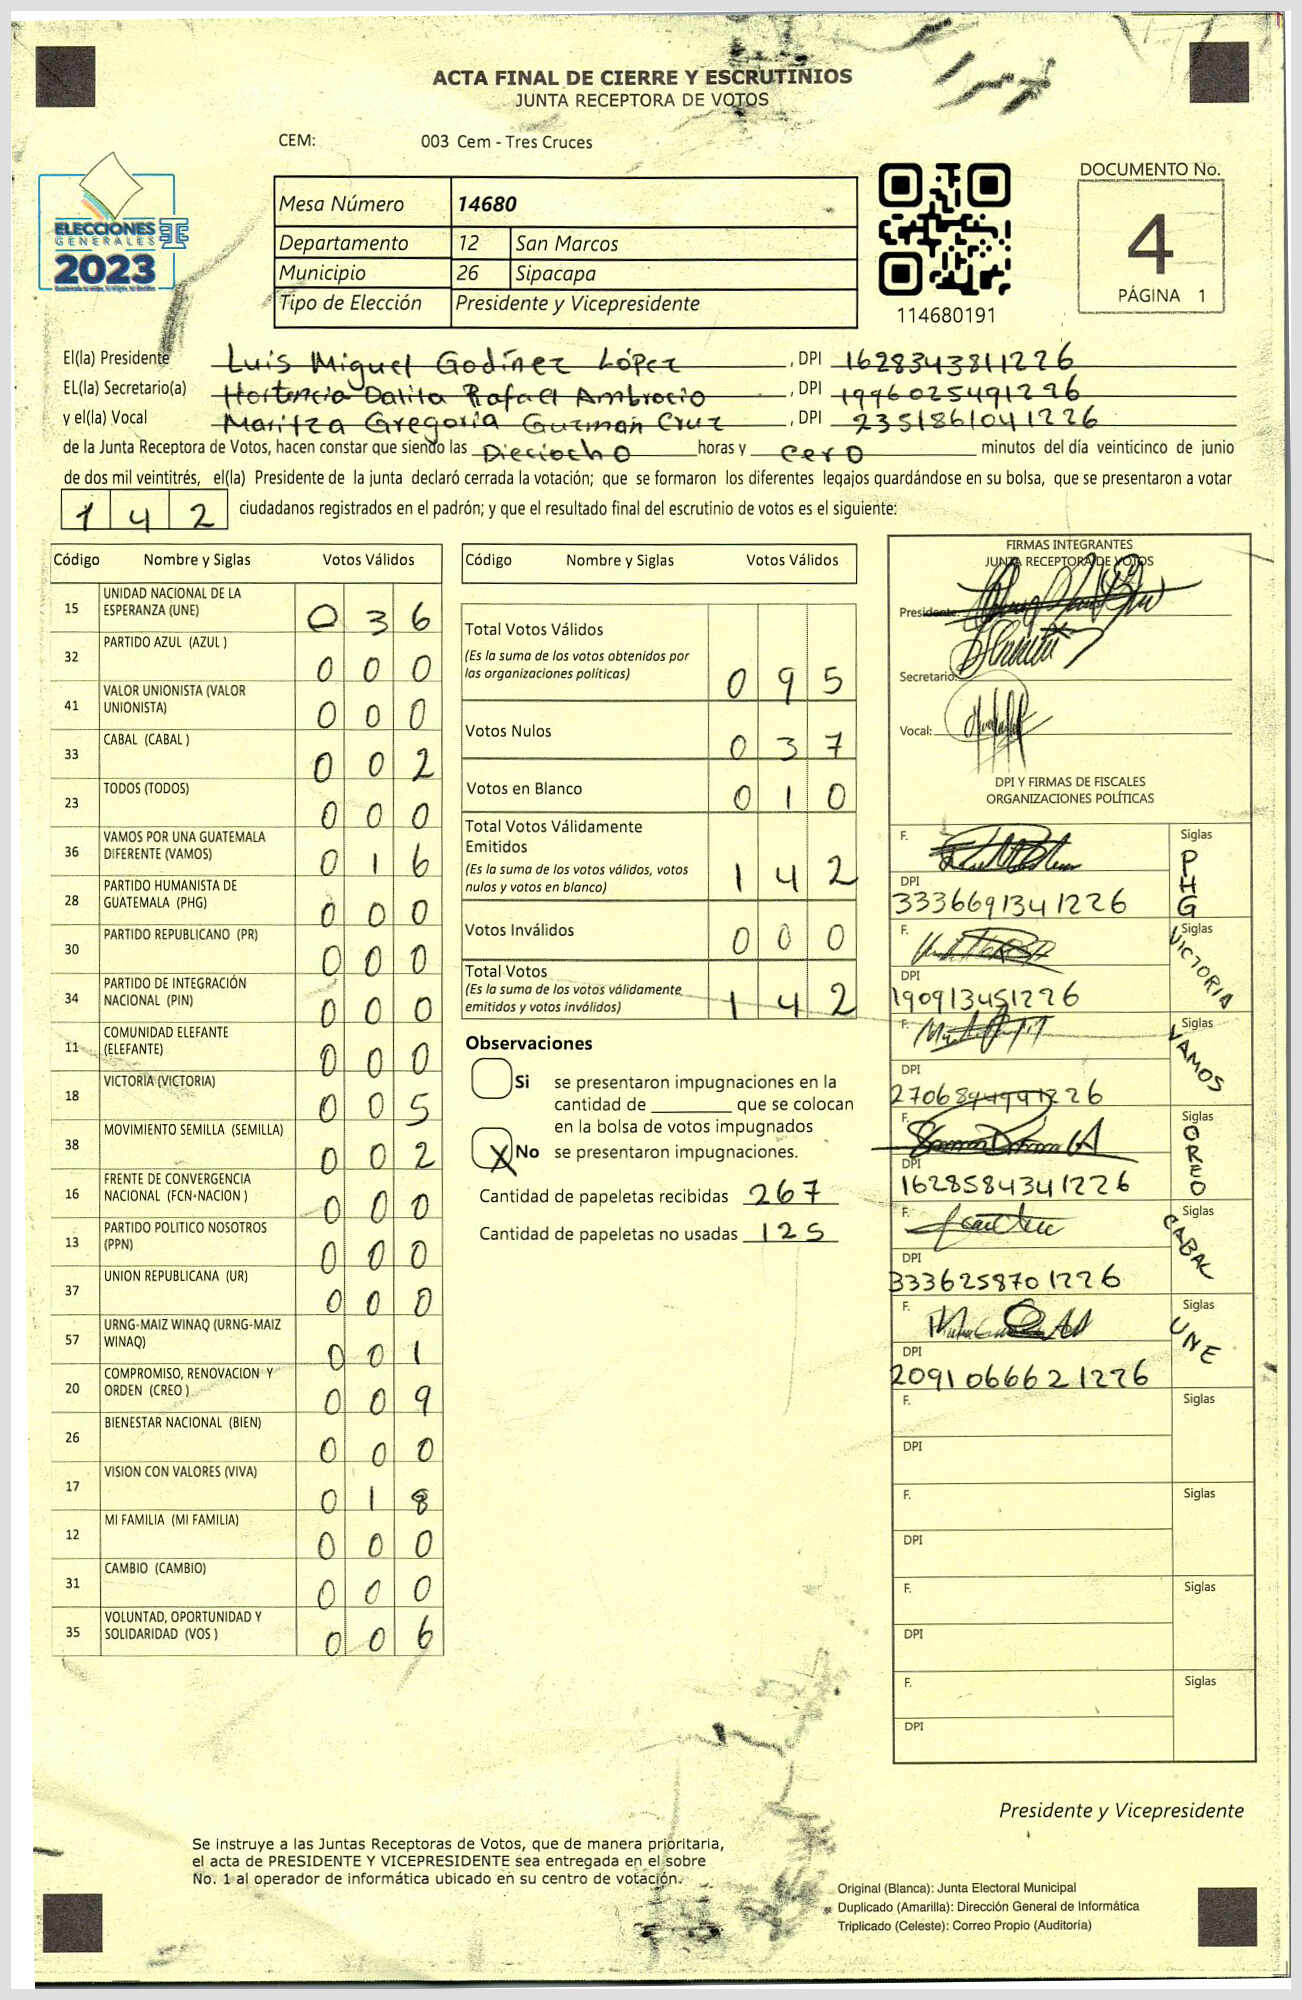 ACTA FINAL DE CIERRE Y ESCRUTINIOS
JUNTA RECEPTORA DE VOTOS
CEM: 003 Cem - Tres Cruces
ELECCIONES
GENERALES
2023
Mesa Número 14680
Departamento 12 San Marcos
Municipio 26 Sipacapa
Tipo de Elección Presidente y Vicepresidente
114680191
DOCUMENTO No.
4
PÁGINA 1
El(la) Presidente Luis Miguel Godínez López , DPI 1628343811226
EL(la) Secretario(a) Hortencia Dalila Rafael Ambrocio , DPI 1996025491226
y el(la) Vocal Maritza Gregoria Guzmán Cruz , DPI 2351861041226
de la Junta Receptora de Votos, hacen constar que siendo las Dieciocho horas y cero minutos del día veinticinco de junio
de dos mil veintitrés, el(la) Presidente de la junta declaró cerrada la votación; que se formaron los diferentes legajos guardándose en su bolsa, que se presentaron a votar
1 4 2 ciudadanos registrados en el padrón; y que el resultado final del escrutinio de votos es el siguiente:
Código Nombre y Siglas Votos Válidos
15 UNIDAD NACIONAL DE LA
ESPERANZA (UNE) 0 3 6
32 PARTIDO AZUL (AZUL ) 0 0 0
41 VALOR UNIONISTA (VALOR
UNIONISTA) 0 0 0
33 CABAL (CABAL ) 0 0 2
23 TODOS (TODOS) 0 0 0
36 VAMOS POR UNA GUATEMALA
DIFERENTE (VAMOS) 0 1 6
28 PARTIDO HUMANISTA DE
GUATEMALA (PHG) 0 0 0
30 PARTIDO REPUBLICANO (PR) 0 0 0
34 PARTIDO DE INTEGRACIÓN
NACIONAL (PIN) 0 0 0
11 COMUNIDAD ELEFANTE
(ELEFANTE) 0 0 0
18 VICTORIA (VICTORIA) 0 0 5
38 MOVIMIENTO SEMILLA (SEMILLA) 0 0 2
16 FRENTE DE CONVERGENCIA
NACIONAL (FCN-NACION ) 0 0 0
13 PARTIDO POLITICO NOSOTROS
(PPN) 0 0 0
37 UNION REPUBLICANA (UR) 0 0 0
57 URNG-MAIZ WINAQ (URNG-MAIZ
WINAQ) 0 0 1
20 COMPROMISO, RENOVACION Y
ORDEN (CREO ) 0 0 9
26 BIENESTAR NACIONAL (BIEN) 0 0 0
17 VISION CON VALORES (VIVA) 0 1 8
12 MI FAMILIA (MI FAMILIA) 0 0 0
31 CAMBIO (CAMBIO) 0 0 0
35 VOLUNTAD, OPORTUNIDAD Y
SOLIDARIDAD (VOS ) 0 0 6
Código Nombre y Siglas Votos Válidos
Total Votos Válidos
(Es la suma de los votos obtenidos por
las organizaciones políticas) 0 9 5
Votos Nulos 0 3 7
Votos en Blanco 0 1 0
Total Votos Válidamente
Emitidos
(Es la suma de los votos válidos, votos
nulos y votos en blanco) 1 4 2
Votos Inválidos 0 0 0
Total Votos
(Es la suma de los votos válidamente
emitidos y votos inválidos) 1 4 2
Observaciones
Si se presentaron impugnaciones en la
cantidad de ________ que se colocan
en la bolsa de votos impugnados
X No se presentaron impugnaciones.
Cantidad de papeletas recibidas 267
Cantidad de papeletas no usadas 125
FIRMAS INTEGRANTES
JUNTA RECEPTORA DE VOTOS
Presidente:
Secretario:
Vocal:
DPI Y FIRMAS DE FISCALES
ORGANIZACIONES POLÍTICAS
F. Siglas PHG
DPI 3336691341226
F. Siglas VICTORIA
DPI 190913451226
F. Siglas VAMOS
DPI
F. Siglas CREO
DPI 1628584341226
F. Siglas CABAL
DPI 3336258701226
F. Siglas UNE
DPI 2091066621226
F. Siglas
DPI
F. Siglas
DPI
F. Siglas
DPI
F. Siglas
DPI
Presidente y Vicepresidente
Se instruye a las Juntas Receptoras de Votos, que de manera prioritaria,
el acta de PRESIDENTE Y VICEPRESIDENTE sea entregada en el sobre
No. 1 al operador de informática ubicado en su centro de votación.
Original (Blanca): Junta Electoral Municipal
Duplicado (Amarilla): Dirección General de Informática
Triplicado (Celeste): Correo Propio (Auditoría)